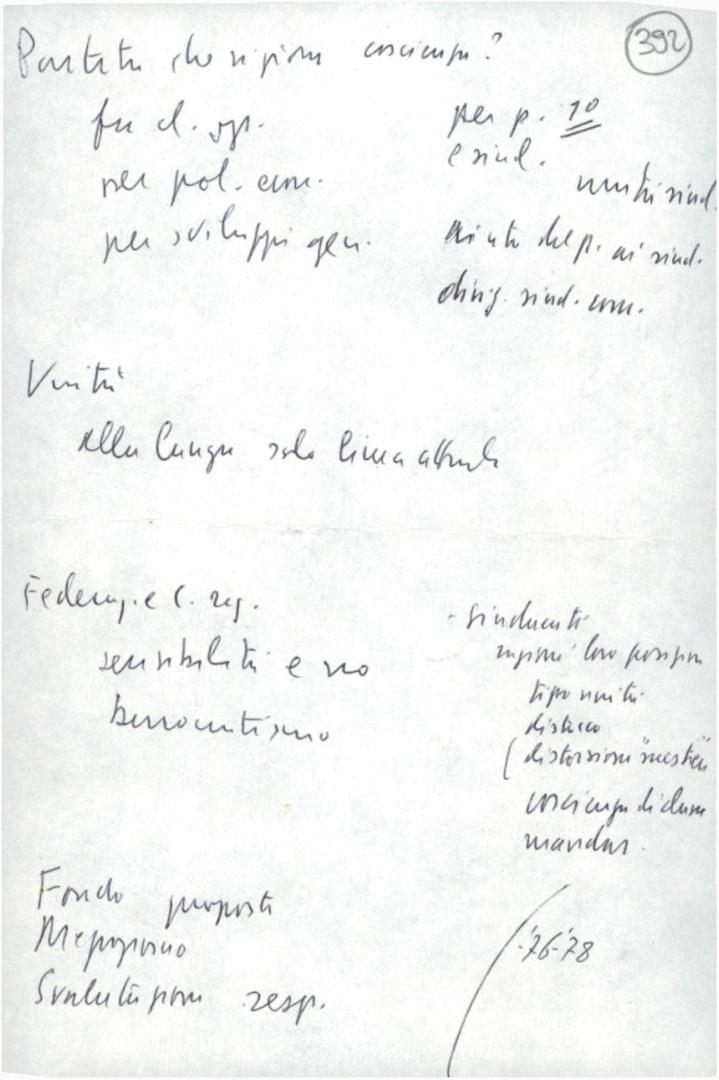 392
Partito che ragiona coscienza?
fu d. op.
per pol. econ.
per sviluppi gen.
per p. 1º
e sind.
unità sind.
aiuto del p. ai sind.
dirig. sind. com.
Unità
alla lunga solo linea attuale
Federaz. e C. reg.
sensibilità e no
burocratismo
- sindacati
ragioni loro posizioni
tipo unità
distacco
( distorsioni "mestiere"
coscienza di classe
mandar.
Fondo proposta
Mezzogiorno
Svalutazione resp.
'76-'78